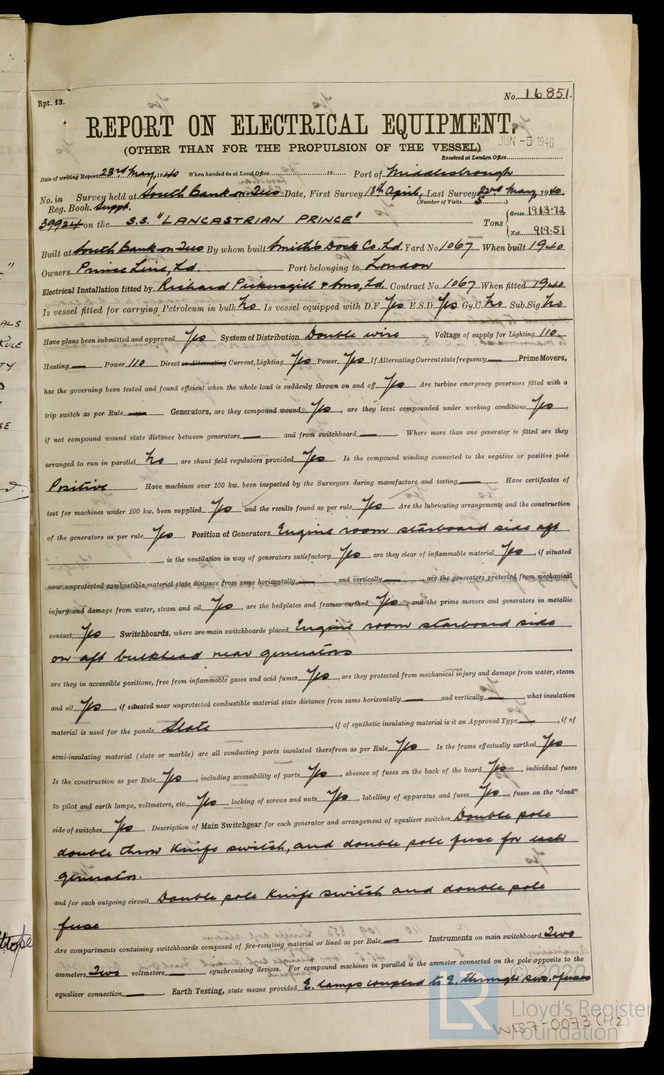 Rpt. 13.
No. 16851.
REPORT ON ELECTRICAL EQUIPMENT.
(OTHER THAN FOR THE PROPULSION OF THE VESSEL)
JUN -5 1940
Received at London Office
Date of writing Report 23rd May 1940 When handed in at Local Office 19 Port of Middlesbrough
No. in Survey held at South Bank-on-Tees Date, First Survey 18th April, Last Survey 23rd May 1940
Reg. Book. Suppt. (Number of Visits 5)
39924 on the S.S. "LANCASTRIAN PRINCE" Tons Gross 1913.72
Net 919.51
Built at South Bank-on-Tees By whom built Smith's Dock Co. Ld. Yard No. 1067 When built 1940
Owners Prince Line, Ld. Port belonging to London
Electrical Installation fitted by Richard Pickersgill & Sons, Ld. Contract No. 1067 When fitted 1940
Is vessel fitted for carrying Petroleum in bulk No Is vessel equipped with D.F. Yes E.S.D. Yes Gy.C. No Sub.Sig. No
Have plans been submitted and approved Yes System of Distribution Double wire Voltage of supply for Lighting 110
Heating — Power 110 Direct or Alternating Current, Lighting Yes Power Yes If Alternating Current state frequency — Prime Movers,
has the governing been tested and found efficient when the whole load is suddenly thrown on and off Yes Are turbine emergency governors fitted with a
trip switch as per Rule — Generators, are they compound wound Yes, are they level compounded under working conditions Yes,
if not compound wound state distance between generators — and from switchboard — Where more than one generator is fitted are they
arranged to run in parallel No, are shunt field regulators provided Yes Is the compound winding connected to the negative or positive pole
Positive Have machines over 100 kw. been inspected by the Surveyors during manufacture and testing — Have certificates of
test for machines under 100 kw. been supplied Yes and the results found as per rule Yes Are the lubricating arrangements and the construction
of the generators as per rule Yes Position of Generators Engine room starboard side aft
, is the ventilation in way of generators satisfactory Yes are they clear of inflammable material Yes, if situated
near unprotected combustible material state distance from same horizontally — and vertically —, are the generators protected from mechanical
injury and damage from water, steam and oil Yes, are the bedplates and frames earthed Yes and the prime movers and generators in metallic
contact Yes Switchboards, where are main switchboards placed Engine room starboard side
on aft bulkhead near generators
are they in accessible positions, free from inflammable gases and acid fumes Yes, are they protected from mechanical injury and damage from water, steam
and oil Yes, if situated near unprotected combustible material state distance from same horizontally — and vertically —, what insulation
material is used for the panels Slate, if of synthetic insulating material is it an Approved Type —, if of
semi-insulating material (slate or marble) are all conducting parts insulated therefrom as per Rule Yes Is the frame effectually earthed Yes
Is the construction as per Rule Yes, including accessibility of parts Yes, absence of fuses on the back of the board Yes, individual fuses
to pilot and earth lamps, voltmeters, etc. Yes locking of screws and nuts Yes, labelling of apparatus and fuses Yes, fuses on the "dead"
side of switches Yes Description of Main Switchgear for each generator and arrangement of equaliser switches Double pole
double throw knife switch, and double pole fuse for each
generator.
and for each outgoing circuit Double pole knife switch and double pole
fuse
Are compartments containing switchboards composed of fire-resisting material or lined as per Rule — Instruments on main switchboard Two
ammeters Two voltmeters — synchronising devices. For compound machines in parallel is the ammeter connected on the pole opposite to the
equaliser connection — Earth Testing, state means provided E. lamps coupled to E. through sw. & fuses
© 2020
LR
Lloyd's Register
Foundation
W187-0073 (1/2)